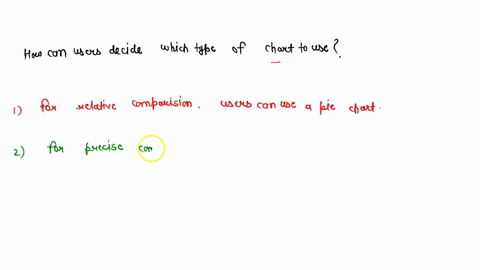 How can users decide which type of chart to use?
1) for relative comparision. users can use a pie chart.
2) for precise con